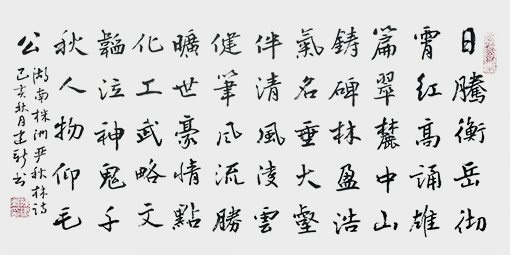 日騰衡岳彻
霄红高誦雄
篇翠麓中山
鑄碑林盈浩
氣名垂大壑
伴清風淩雲
健筆风流勝
曠世豪情點
化工武略文
韜泣神鬼千
秋人物仰毛
公
湖南株洲严秋林诗
己亥秋月建新书